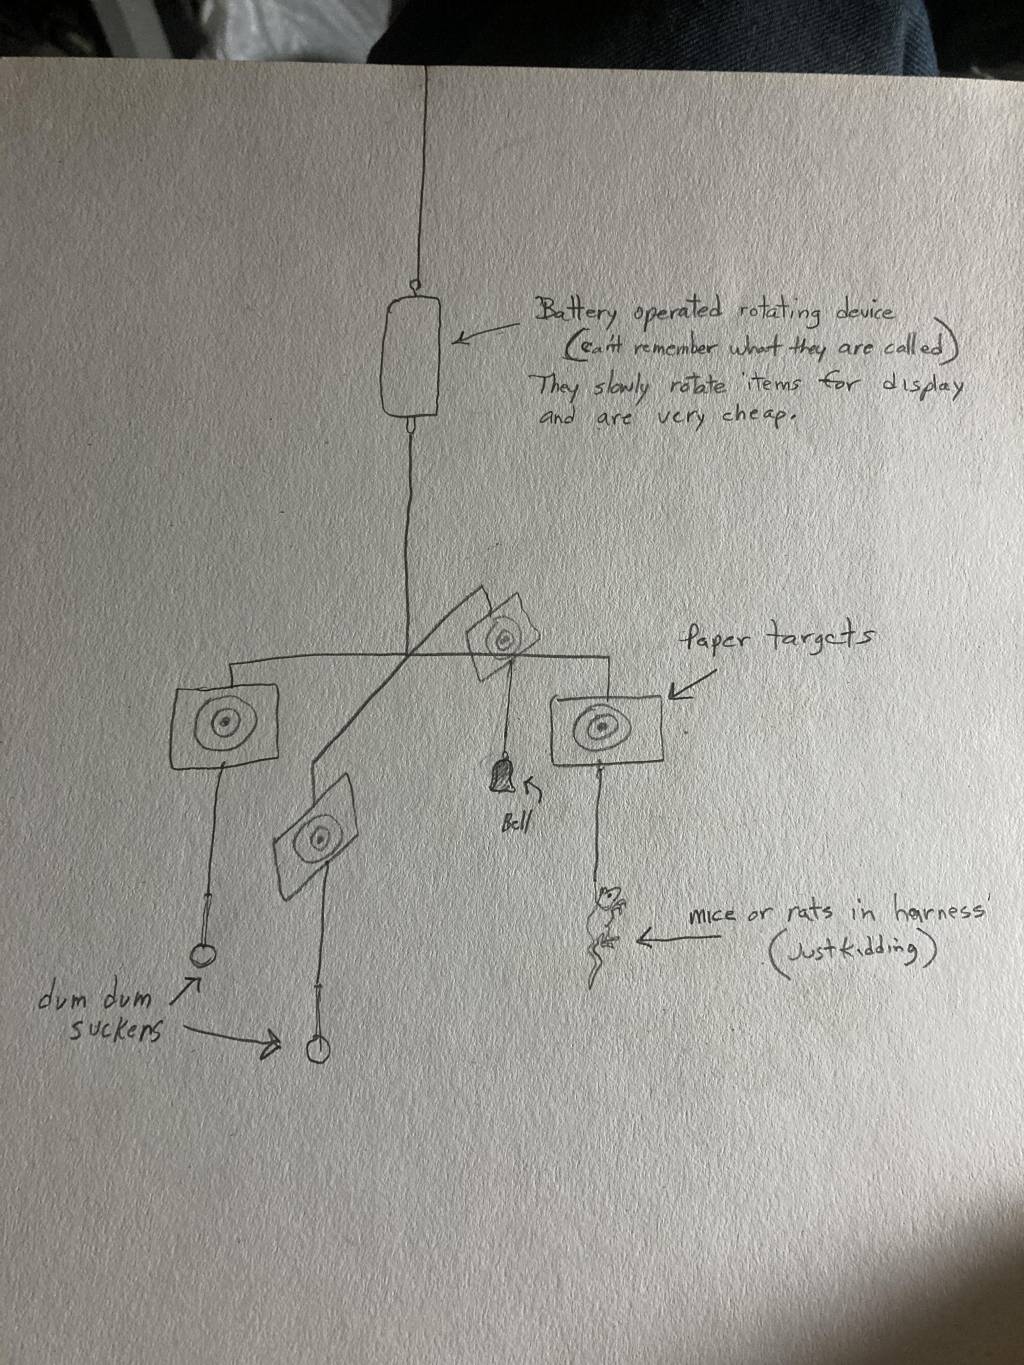 Battery operated rotating device
(can't remember what they are called)
They slowly rotate items for display
and are very cheap.
Paper targets
Bell
mice or rats in harness
(Just kidding)
dum dum
suckers